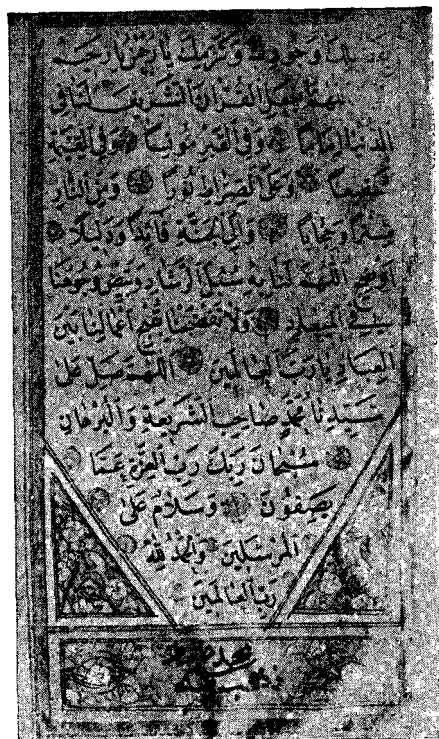 وجودك وكرمك يا ارحم الراحمين
اللهم اجعل القرآن الشريف لنا في
الدنيا اماما وفي القبر مونسا وفي القيمة
شفيعا وعلى الصراط نورا ومن النار
سترا وحجابا والى الجنة قائدا ودليلا
اللهم لنا به سبل ارشاد وبيض وجوهنا
في الميعاد ولا تفضحنا بقبح اعمالنا بين
العباد يا رب العالمين اللهم صل على
سيدنا محمد صاحب الشريعة والبرهان
سبحان ربك رب العزة عما
يصفون وسلام على
المرسلين والحمد لله
رب العالمين